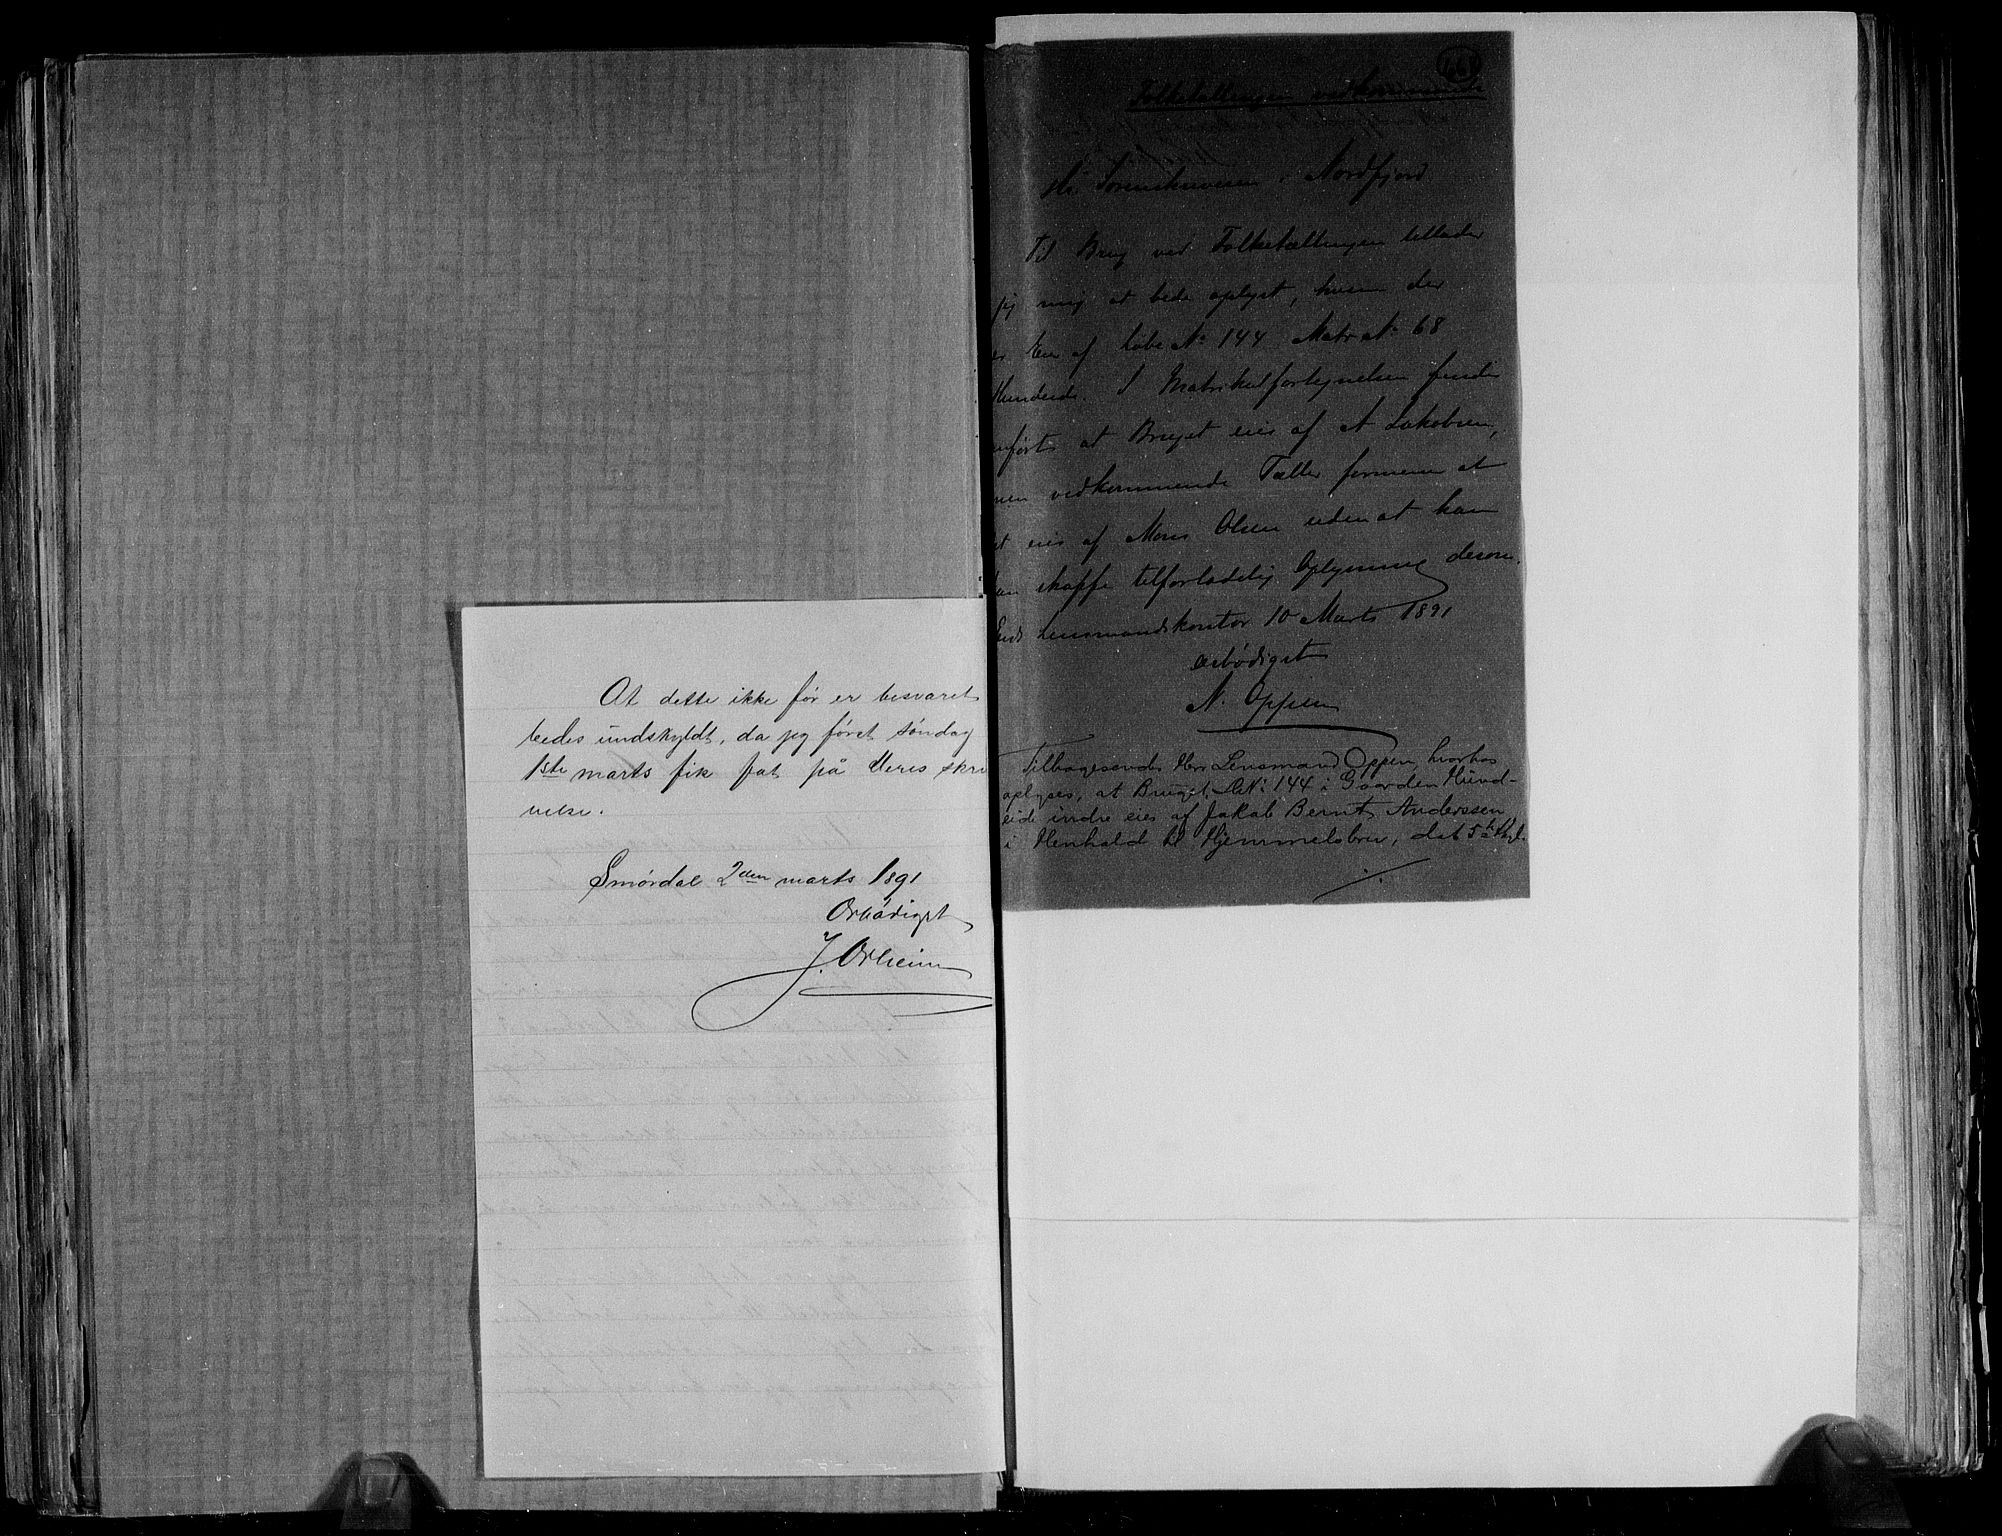 At dette ikke før er besvaret
bedes undskyldt, da jeg først søndag
1ste marts fik fat på Deres skri
velse.
Smørdal 2den marts 1891
Ærbødigst
J. Ørheim
Folketællingen vedkommende
Hr. Sorenskriveren i Nordfjord
Til Brug ved Folketællingen tillader
jeg mig at bede oplyst, hvem der
er Eier af Løbe No 144 Matr No 68
Hundeide. I Matrikelfortegnelsen findes
anført at Bruget eies af A Jakobsen,
men vedkommende Tæller formener at
det eies af Mons Olsen uden at han
kan skaffe tilforladelig Oplysning desom.
Eids Lensmandskontor 10 Marts 1891
ærbødigst
N. Oppen
Tilbagesendes Hr. Lensmand Oppen, hvorhos
oplyses, at Bruget, L.No 144 i Gaarden Hund-
eide indre eies af Jakob Bernt Anderssen
i Henhold til Hjemmelsbrev, dat 5te